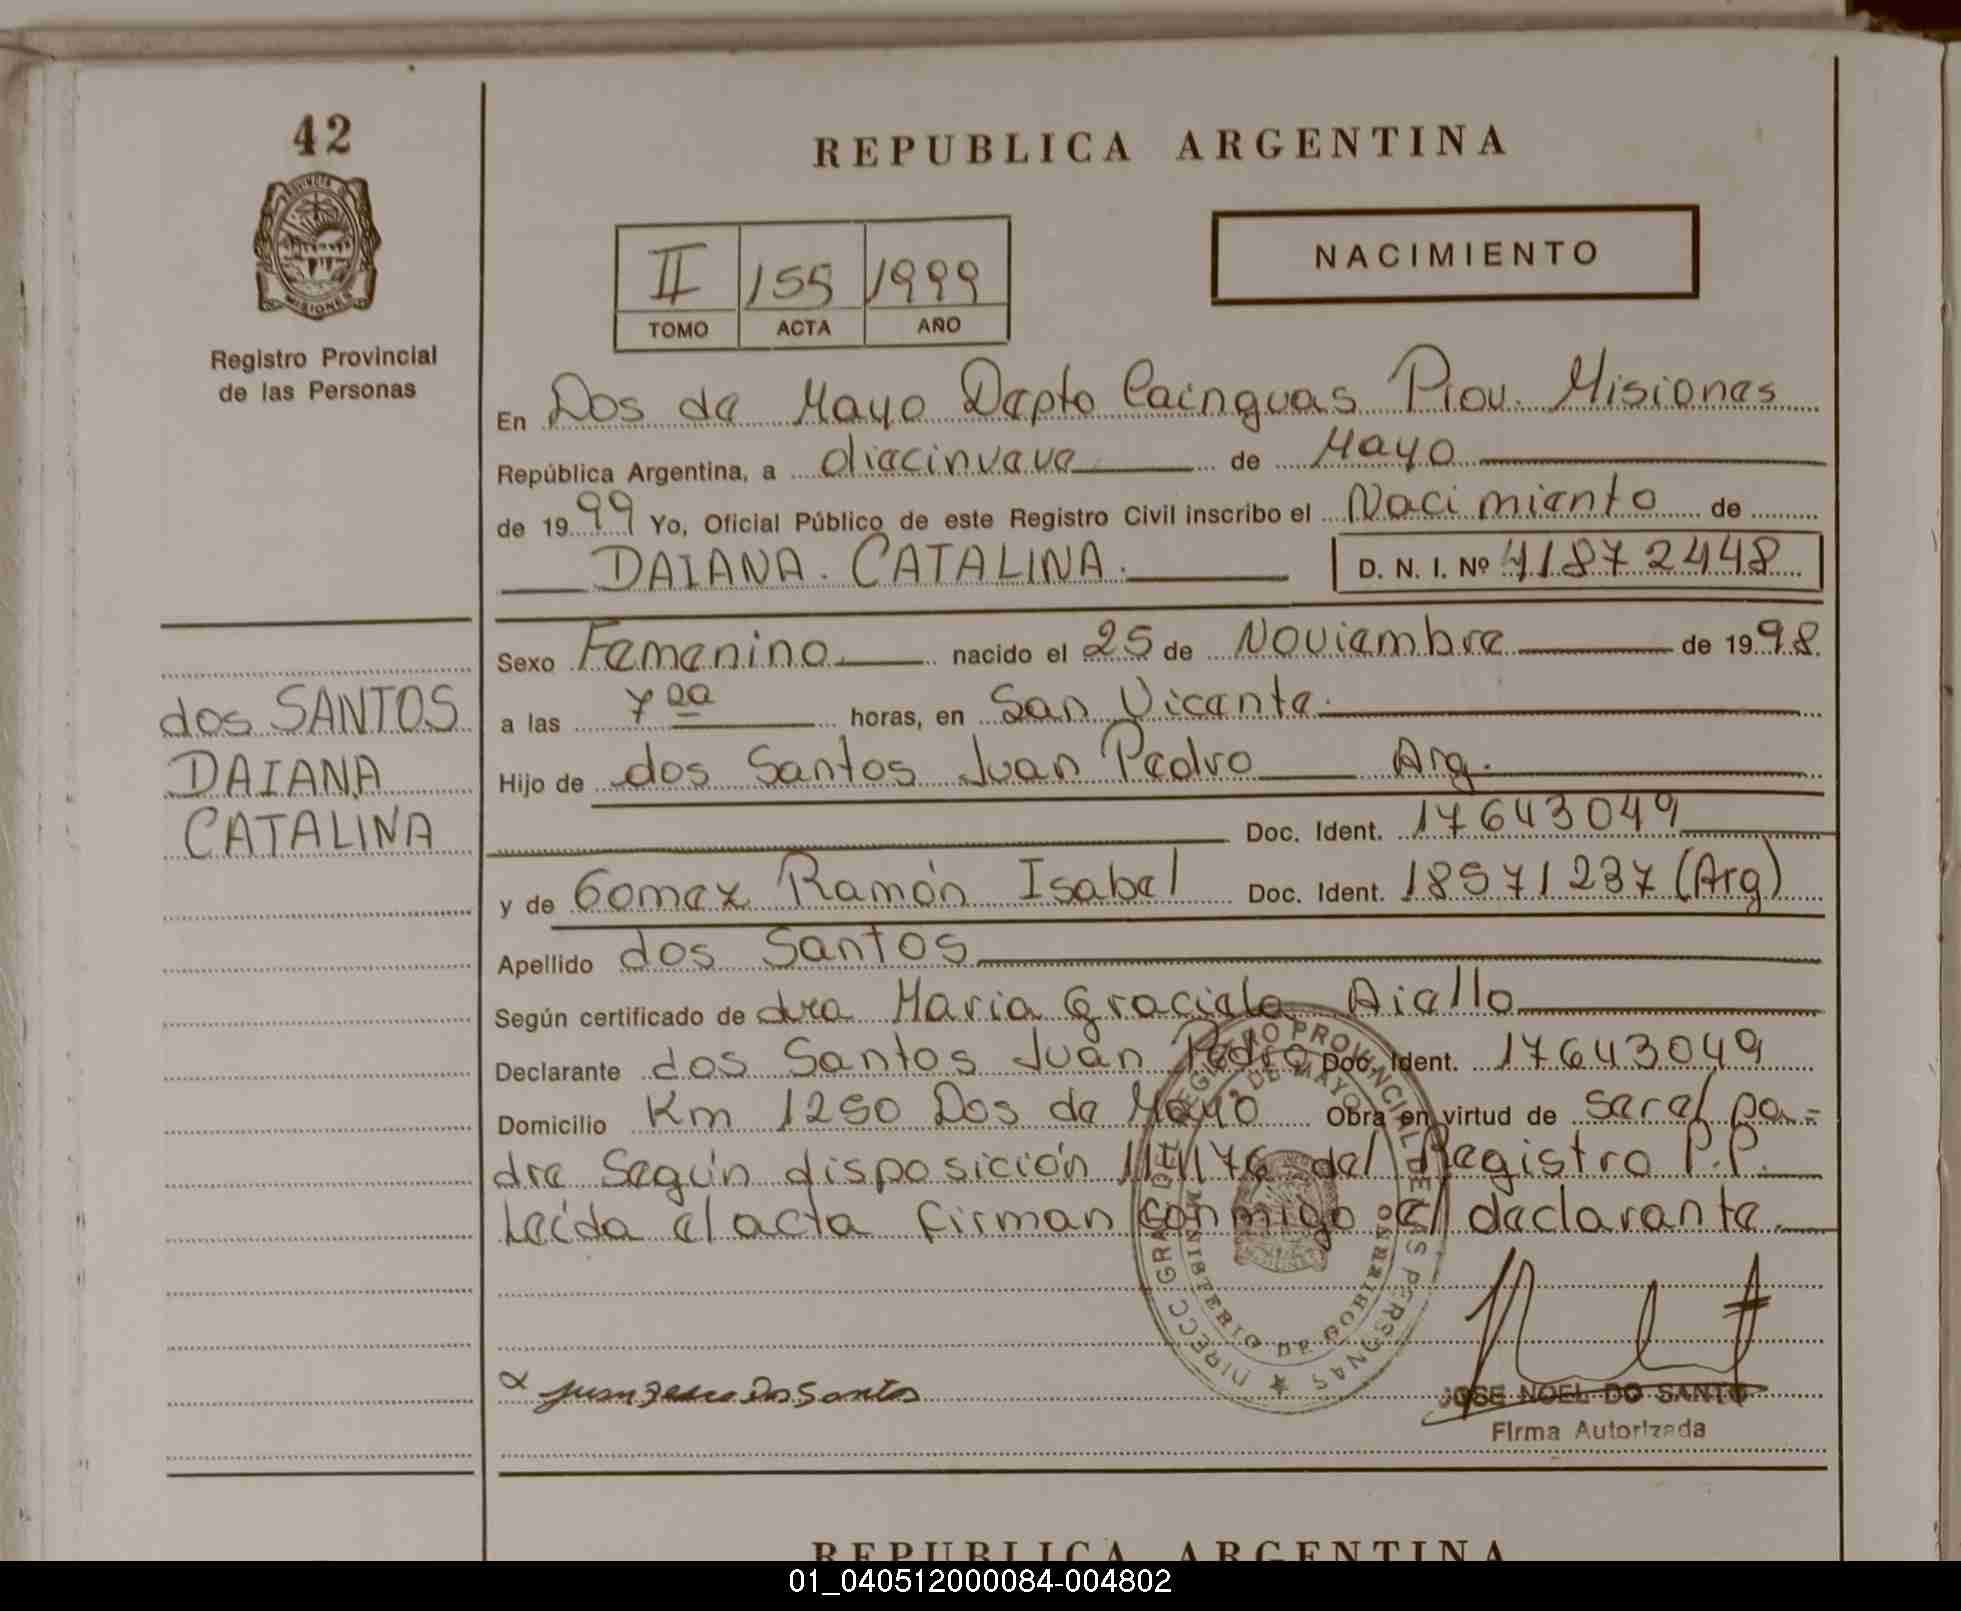 42
PROVINCIA DE
MISIONES
Registro Provincial
de las Personas
dos SANTOS
DAIANA
CATALINA
REPUBLICA ARGENTINA
II 155 1999
TOMO ACTA AÑO
NACIMIENTO
En Dos de Mayo Depto Cainguas Prov. Misiones
República Argentina, a diecinueve de Mayo
de 1999 Yo, Oficial Público de este Registro Civil inscribo el Nacimiento de
DAIANA. CATALINA. D. N. I. Nº 41872448
Sexo Femenino nacido el 25 de Noviembre de 1998.
a las 7 oo horas, en San Vicente.
Hijo de dos Santos Juan Pedro Arg.
Doc. Ident. 17643049
y de Gomez Ramón Isabel Doc. Ident. 18571237 (Arg)
Apellido dos Santos
Según certificado de dra Maria Graciela Aiello
Declarante dos Santos Juan Pedro Doc. Ident. 17643049
Domicilio Km 1250 Dos de Mayo Obra en virtud de ser el pa=
dre Según disposición del Registro P.P.
Leída el acta firman conmigo el declarante.
DIRECC GRAL DEL REGISTRO PROVINCIAL DE LAS PERSONAS
2 DE MAYO
MINISTERIO DE GOBIERNO
Juan Pedro Dos Santos
JOSE NOEL DO SANTO
Firma Autorizada
REPUBLICA ARGENTINA
01_040512000084-004802